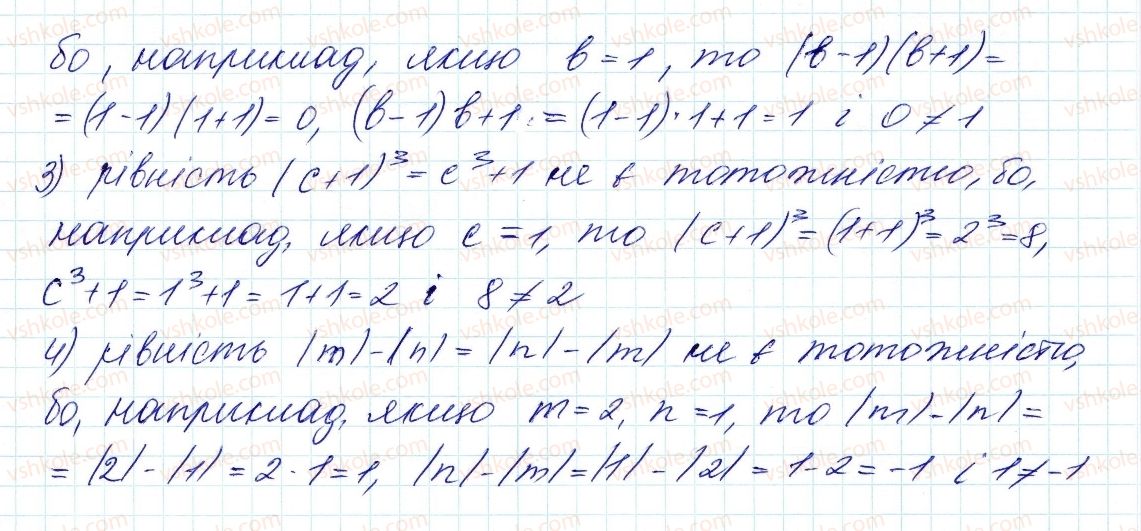 бо, наприклад, якщо b = 1, то (b-1)(b+1) =
= (1-1)(1+1) = 0, (b-1)b+1 = (1-1)·1+1 = 1 і 0 ≠ 1
3) рівність (c+1)³ = c³+1 не є тотожністю, бо,
наприклад, якщо c = 1, то (c+1)³ = (1+1)³ = 2³ = 8,
c³+1 = 1³+1 = 1+1 = 2 і 8 ≠ 2
4) рівність |m|-|n| = |n|-|m| не є тотожністю,
бо, наприклад, якщо m = 2, n = 1, то |m|-|n| =
= |2|-|1| = 2-1 = 1, |n|-|m| = |1|-|2| = 1-2 = -1 і 1 ≠ -1